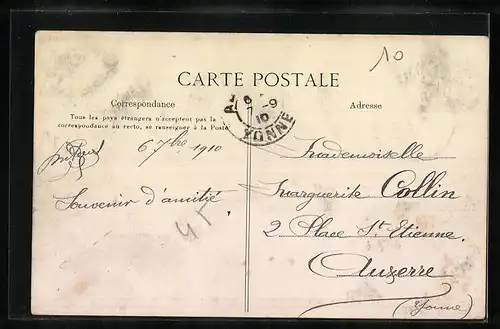 10
CARTE POSTALE
Correspondance
Tous les pays étrangers n'acceptent pas la
correspondance au recto, se renseigner à la Poste
Adresse
7 -9
10
YONNE
6 7bre 1910
Souvenir d'amitié
Mademoiselle
Marguerite Collin
2 Place St Etienne
Auxerre
(Yonne)